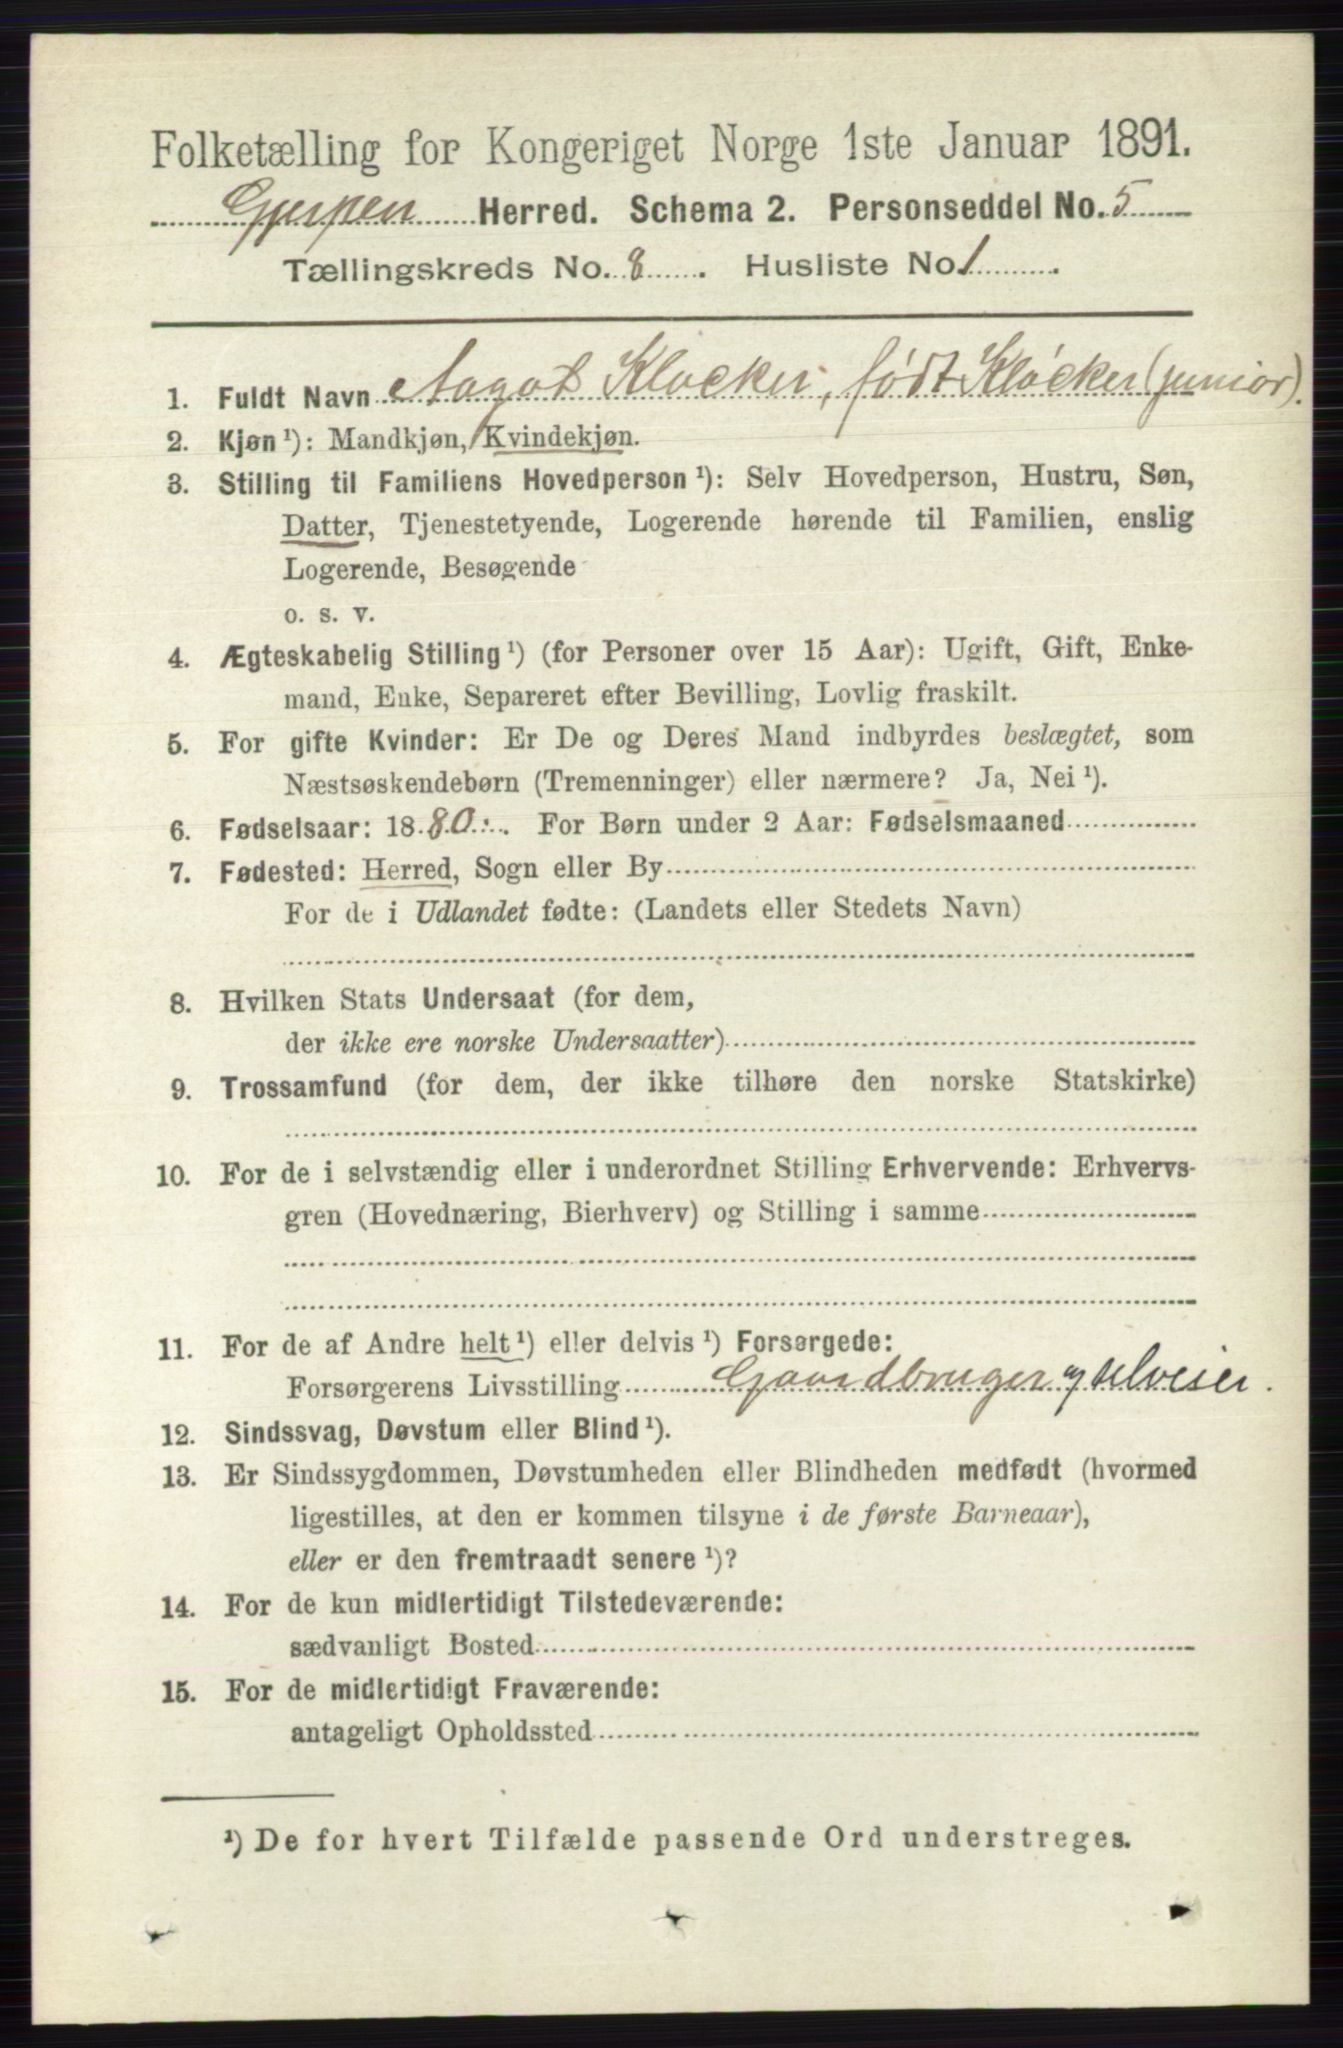 Folketælling for Kongeriget Norge 1ste Januar 1891.
Gjerpen Herred. Schema 2. Personseddel No. 5
Tællingskreds No. 8. Husliste No. 1.
1. Fuldt Navn Aagot Kløcker, født Kløcker (junior).
2. Kjøn ¹): Mandkjøn, Kvindekjøn.
3. Stilling til Familiens Hovedperson ¹): Selv Hovedperson, Hustru, Søn,
Datter, Tjenestetyende, Logerende hørende til Familien, enslig
Logerende, Besøgende
o. s. v.
4. Ægteskabelig Stilling ¹) (for Personer over 15 Aar): Ugift, Gift, Enke-
mand, Enke, Separeret efter Bevilling, Lovlig fraskilt.
5. For gifte Kvinder: Er De og Deres Mand indbyrdes beslægtet, som
Næstsøskendebørn (Tremenninger) eller nærmere? Ja, Nei ¹).
6. Fødselsaar: 1880. For Børn under 2 Aar: Fødselsmaaned
7. Fødested: Herred, Sogn eller By
For de i Udlandet fødte: (Landets eller Stedets Navn)
8. Hvilken Stats Undersaat (for dem,
der ikke ere norske Undersaatter)
9. Trossamfund (for dem, der ikke tilhøre den norske Statskirke)
10. For de i selvstændig eller i underordnet Stilling Erhvervende: Erhvervs-
gren (Hovednæring, Bierhverv) og Stilling i samme
11. For de af Andre helt ¹) eller delvis ¹) Forsørgede:
Forsørgerens Livsstilling Gaardbruger og selveier.
12. Sindssvag, Døvstum eller Blind ¹).
13. Er Sindssygdommen, Døvstumheden eller Blindheden medfødt (hvormed
ligestilles, at den er kommen tilsyne i de første Barneaar),
eller er den fremtraadt senere ¹)?
14. For de kun midlertidigt Tilstedeværende:
sædvanligt Bosted
15. For de midlertidigt Fraværende:
antageligt Opholdssted
¹) De for hvert Tilfælde passende Ord understreges.